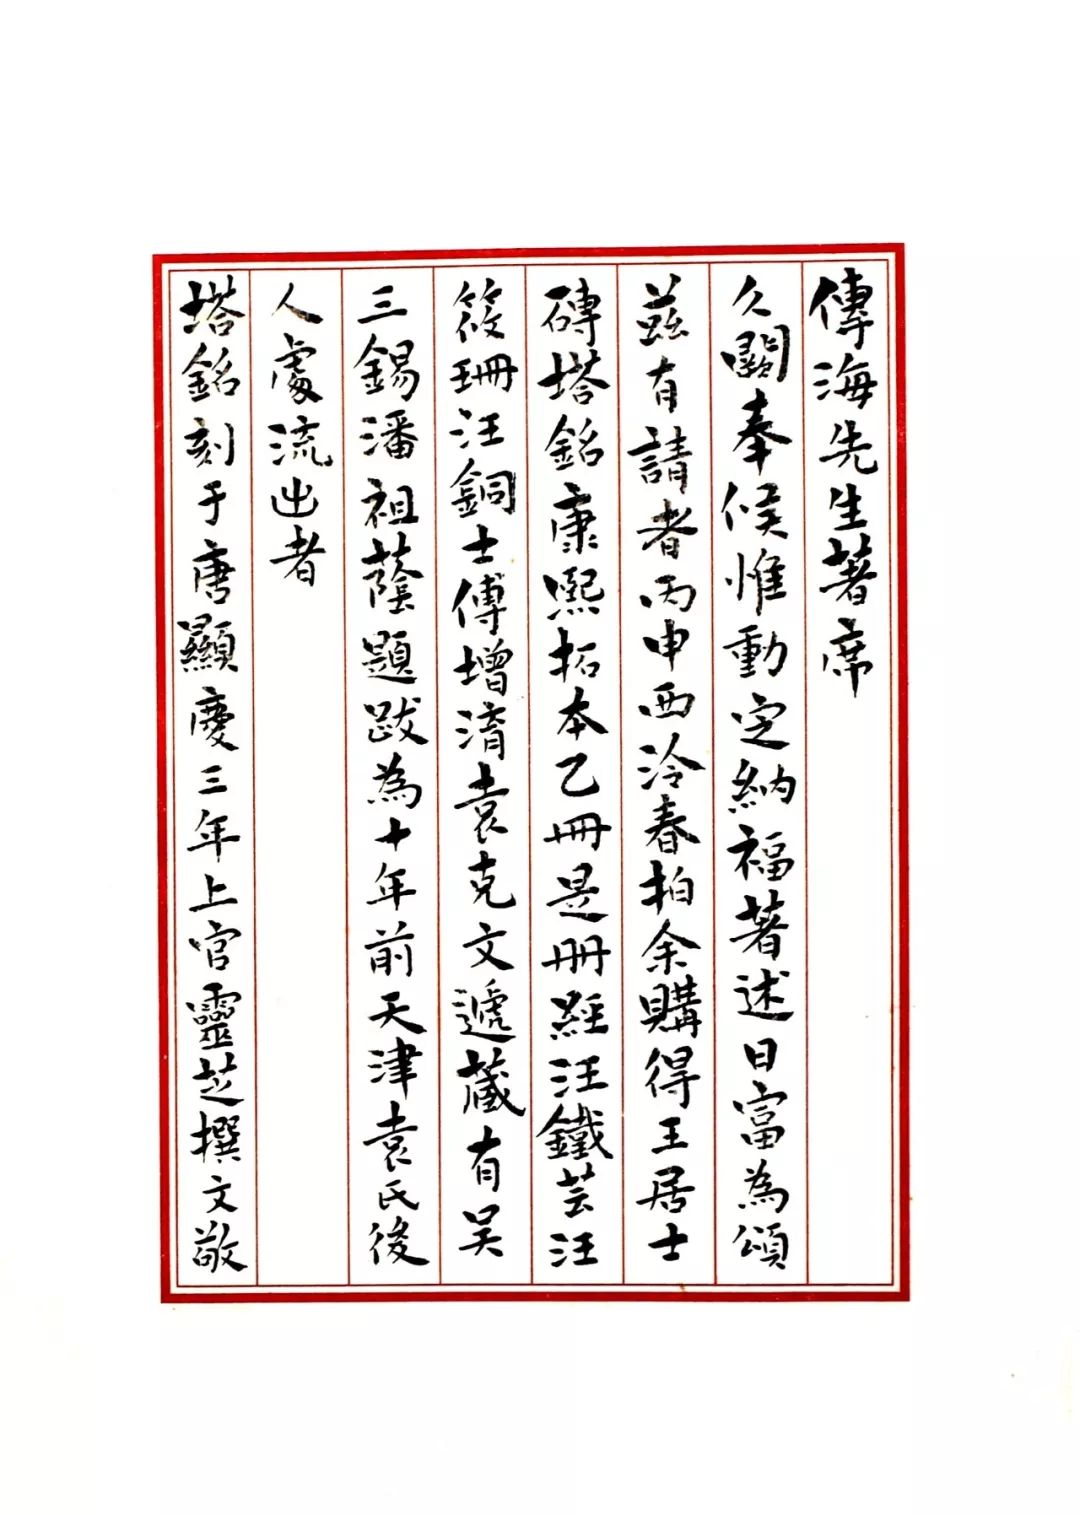 傳海先生著席
久闕奉候惟動定納福著述日富為頌
茲有請者丙申西泠春拍余購得王居士
磚塔銘康熙拓本乙冊是冊經汪鐵芸汪
筱珊汪銅士傅增淯袁克文遞藏有吴
三錫潘祖蔭題跋為十年前天津袁氏後
人處流出者
塔銘刻于唐顯慶三年上官靈芝撰文敬